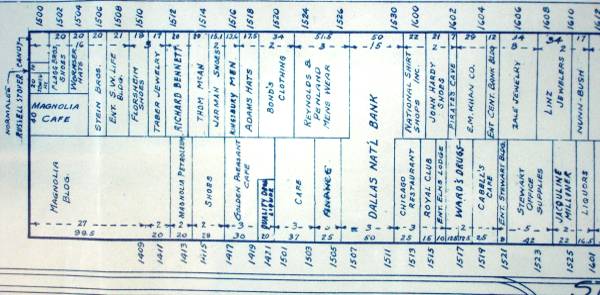 1500 1502 1504 1506 1508 1510 1512 1514 1516 1518 1520 1524 1526 1530 1600 1602 1604 1606 1608 1610 1612
20 20 20 21 17 17.5 34 51.5 50 22 21 17 29 12 34 34 17
16 3 3 15 8
RUSSELL STOVER CANDY
FLAGG BROS. SHOES
WORMSER HATS
STEIN BROS.
ENT. S.W. LIFE BLDG.
FLORSHEIM SHOES
TABER JEWELRY
RICHARD BENNETT
THOM McAN
JARMAN SHOES
KINGSBURY MEN
ADAMS HATS
BOND'S CLOTHING
REYNOLDS & PENLAND MENS WEAR
DALLAS NAT'L BANK
NATIONAL SHIRT SHOPS INC.
JOHN HARDY SHOES
PIRATE'S CAVE
E.M. KHAN CO.
ENT. CONT. BANK BLDG
ZALE JEWELRY
LINZ JEWELERS
NUNN-BUSH
40
MAGNOLIA CAFE
MAGNOLIA BLDG.
MAGNOLIA PETROLEUM
SHOES
GOLDEN PHEASANT CAFE
QUALITY DRUG LIQUOR
CAFE
CHICAGO RESTAURANT
ROYAL CLUB
ENT. ELKS LODGE
WARD'S DRUGS
CABELL'S CAFE
ENT. STEWART BLDG.
STEWART OFFICE SUPPLIES
JACQULINE MILLINER
LIQUORS
27 2 2 3 3 3 3
99.5 20 20 29 30 20 37 25 50 25 15 10 25 21 42 22 16.5
1409 1411 1413 1415 1417 1419 1421 1501 1503 1505 1507 1511 1513 1515 1517 1519 1521 1523 1525 1601
ST